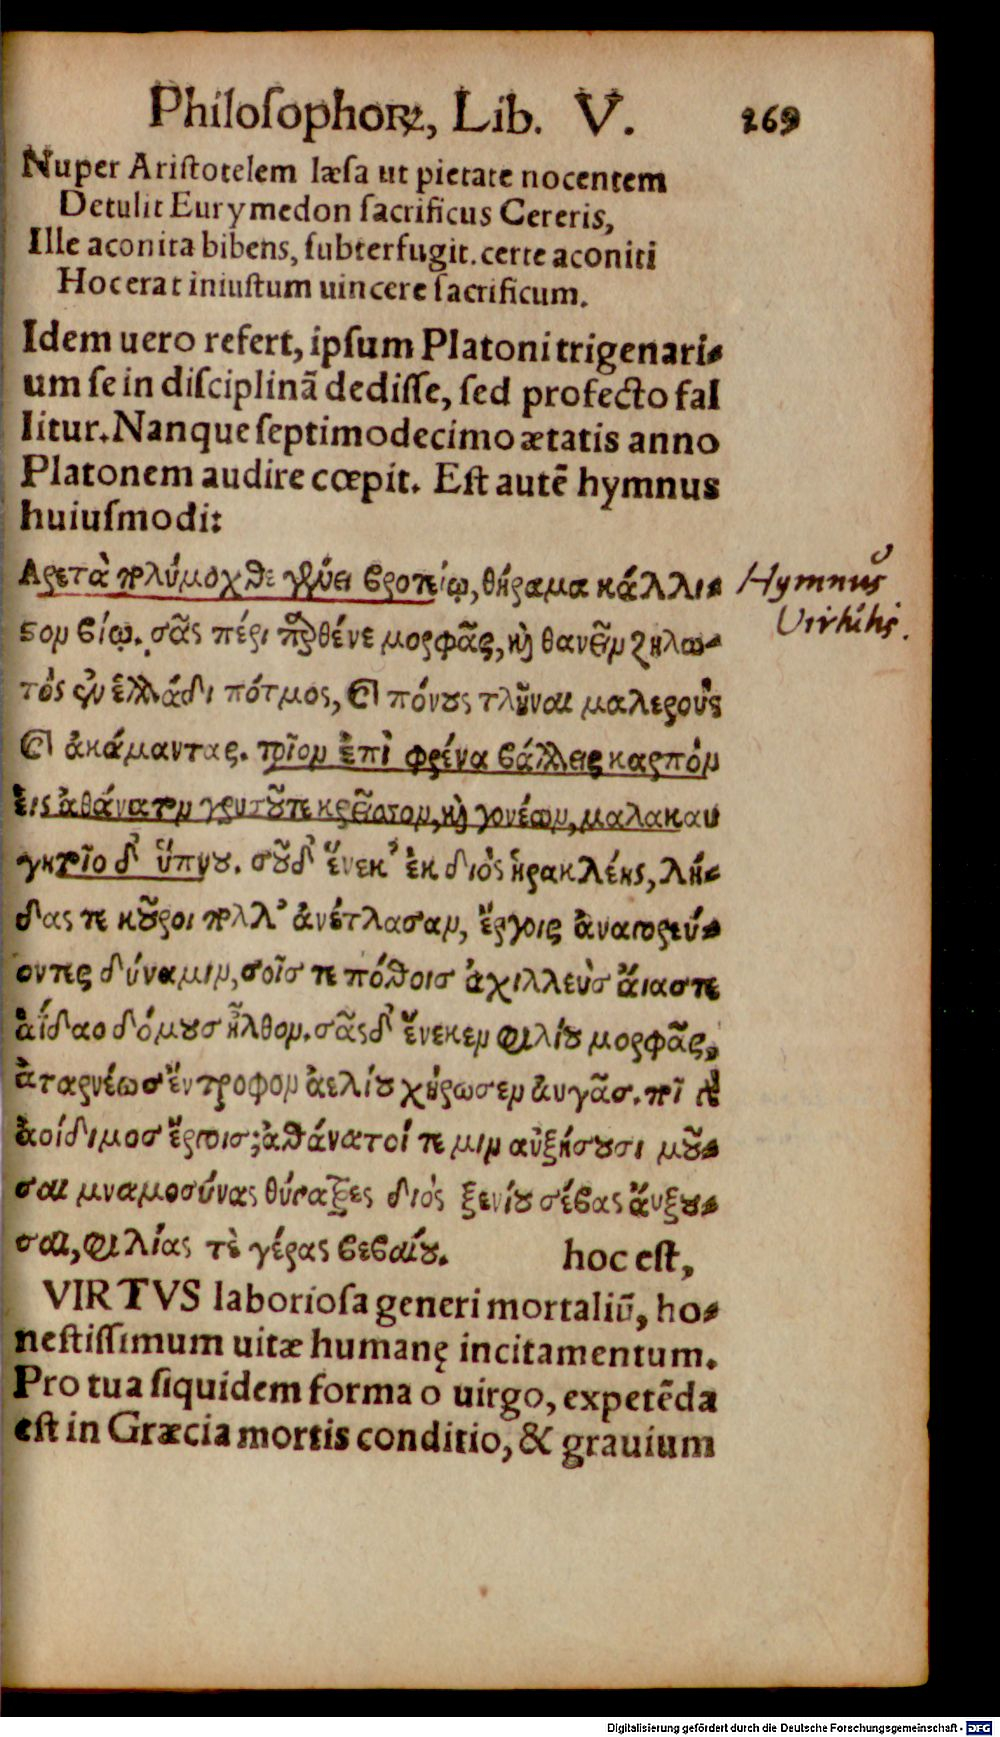 Philoſophoꝝ, Lib. V. 269
Nuper Ariſtotelem læſa ut pietate nocentem
Detulit Eurymedon ſacrificus Cereris,
Ille aconita bibens, ſubterfugit. certe aconiti
Hoc erat iniuſtum uincere ſacrificum.
Idem uero refert, ipſum Platoni trigenari⸗
um ſe in diſciplinā dediſſe, ſed profecto fal
litur. Nanque ſeptimodecimo ætatis anno
Platonem audire cœpit. Eſt autē hymnus
huiuſmodi:
Αρετὰ πολύμοχθε γένει βροτείῳ, θήραμα κάλλι⸗
Hymnus
στον βίῳ. σᾶς πέρι παρθένε μορφᾶς, καὶ θανεῖν ζηλω⸗
Virtutis.
τὸς ἐν ἑλλάδι πότμος, καὶ πόνους τλῆναι μαλεροὺς
καὶ ἀκάμαντας. τοῖον ἐπὶ φρένα βάλλεις καρπὸν
εἰς ἀθάνατον χρυσοῦ τε κρεῖσσον, καὶ γονέων, μαλακαυ
γητοῖο δ' ὕπνου. σοῦ δ' ἕνεκ' ἐκ διὸς ἡρακλέης, λή⸗
δας τε κοῦροι πολλ' ἀνέτλασαν, ἔργοις ἀναγορεύ⸗
οντες δύναμιν, σοῖσ τε πόθοισ ἀχιλλεὺσ ἄιασ τε
ἀίδαο δόμουσ ἦλθον. σᾶς δ' ἕνεκεν φιλίου μορφᾶς,
ἀταρνέωσ ἔντροφον ἀελίου χήρωσεν ἀυγᾶσ. τοι
ἀοίδιμοσ ἔργοισ; ἀθάνατοί τε μιν αὐξήσουσι μοῦ⸗
σαι μναμοσύνας θύγατρες διὸς ξενίου σέβας ἄυξου⸗
σαι, φιλίας τὲ γέρας βεβαίου. hoc eſt,
VIRTVS laborioſa generi mortaliū, ho⸗
neſtiſſimum uitæ humanę incitamentum.
Pro tua ſiquidem forma o uirgo, expetēda
eſt in Græcia mortis conditio, & grauium
Digitalisierung gefördert durch die Deutsche Forschungsgemeinschaft - DFG